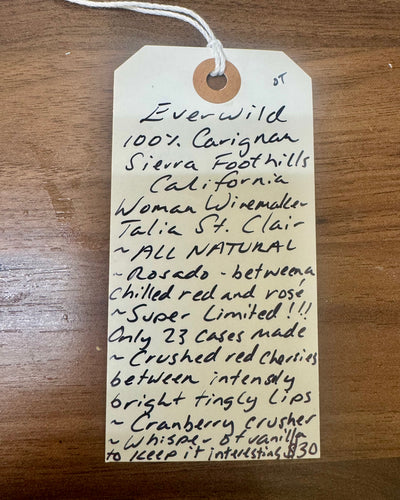 DT
Everwild
100% Carignan
Sierra Foothills
California
Woman Winemaker
Talia St. Clair
~ ALL NATURAL
~ Rosado - between a
chilled red and rosé
~ Super Limited!!!
Only 23 cases made
~ Crushed red cherries
between intensely
bright tingly lips
~ Cranberry crusher
~ Whisper of vanilla
to keep it interesting $30